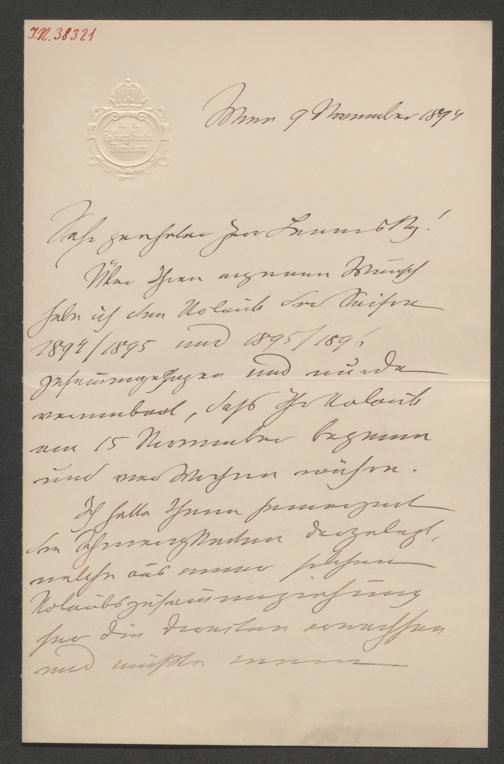 I.N. 38321
Wien 9 November 1894
Sehr geehrter Herr !
Über Ihren eigenen Wunsch
habe ich den Urlaub der Saison
1894/1895 und 1895/189
zusammengezogen und wurde
vereinbart, daß Ihr Urlaub
am 15 November beginne
und vier Wochen währe.
Ich hatte Ihnen seinerzeit
die Schwierigkeiten dargelegt,
welche aus einer solchen
Urlaubszusammenziehung
für die Direction erwachsen
und mußte einen